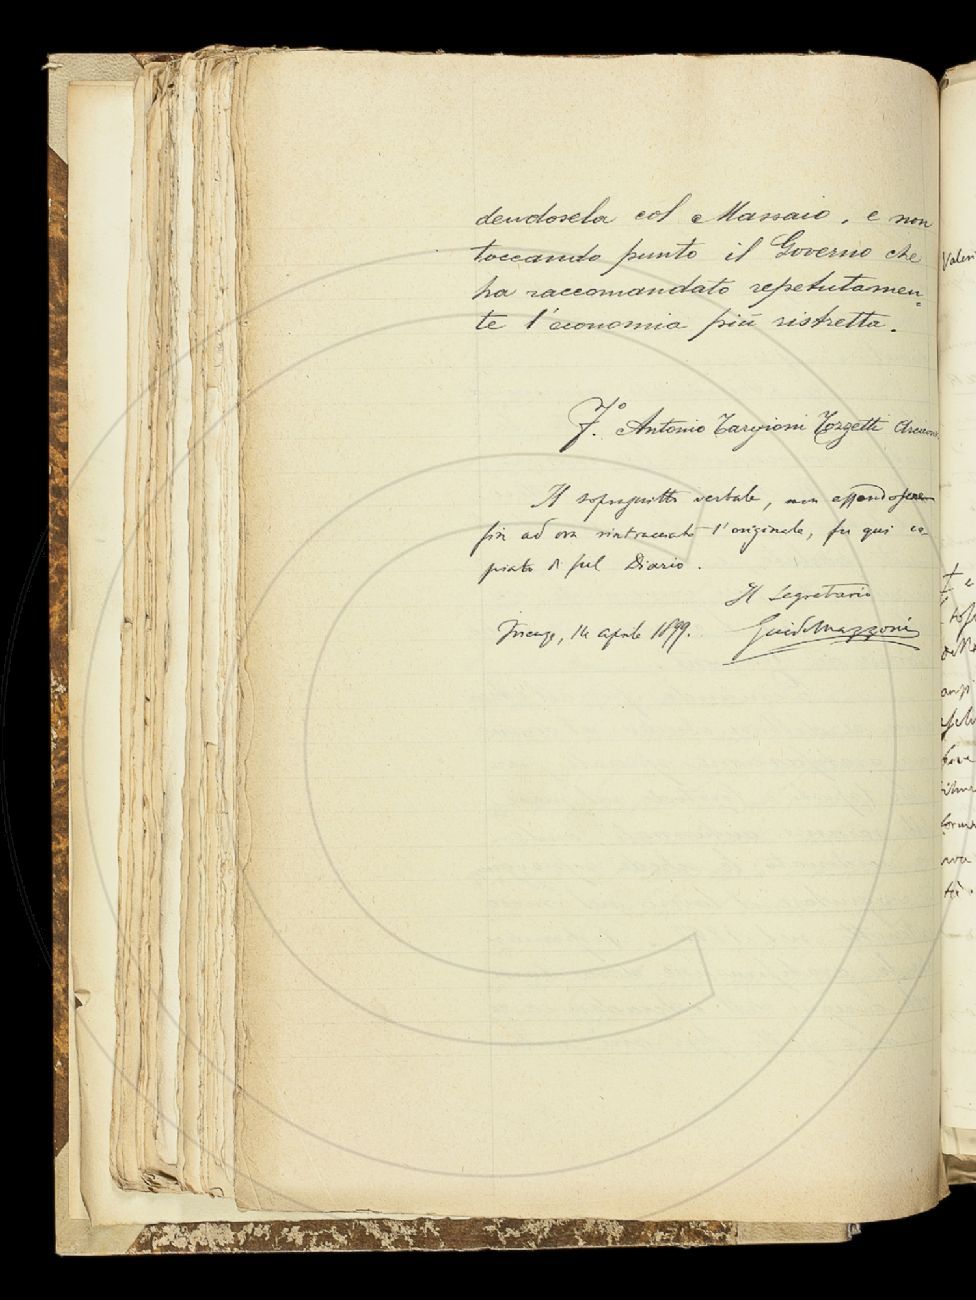 dendosela col Massaio, e non
toccando punto il Governo che
ha raccomandato repetutamen-
te l'economia più ristretta.
F.° Antonio Targioni Tozzetti Arcicons.
Il soprascritto verbale, non essendosene
fin ad ora rintracciato l'originale, fu qui co-
piato sul Diario.
Il Segretario
Firenze, 14 aprile 1899. Guido Mazzoni
Valeri